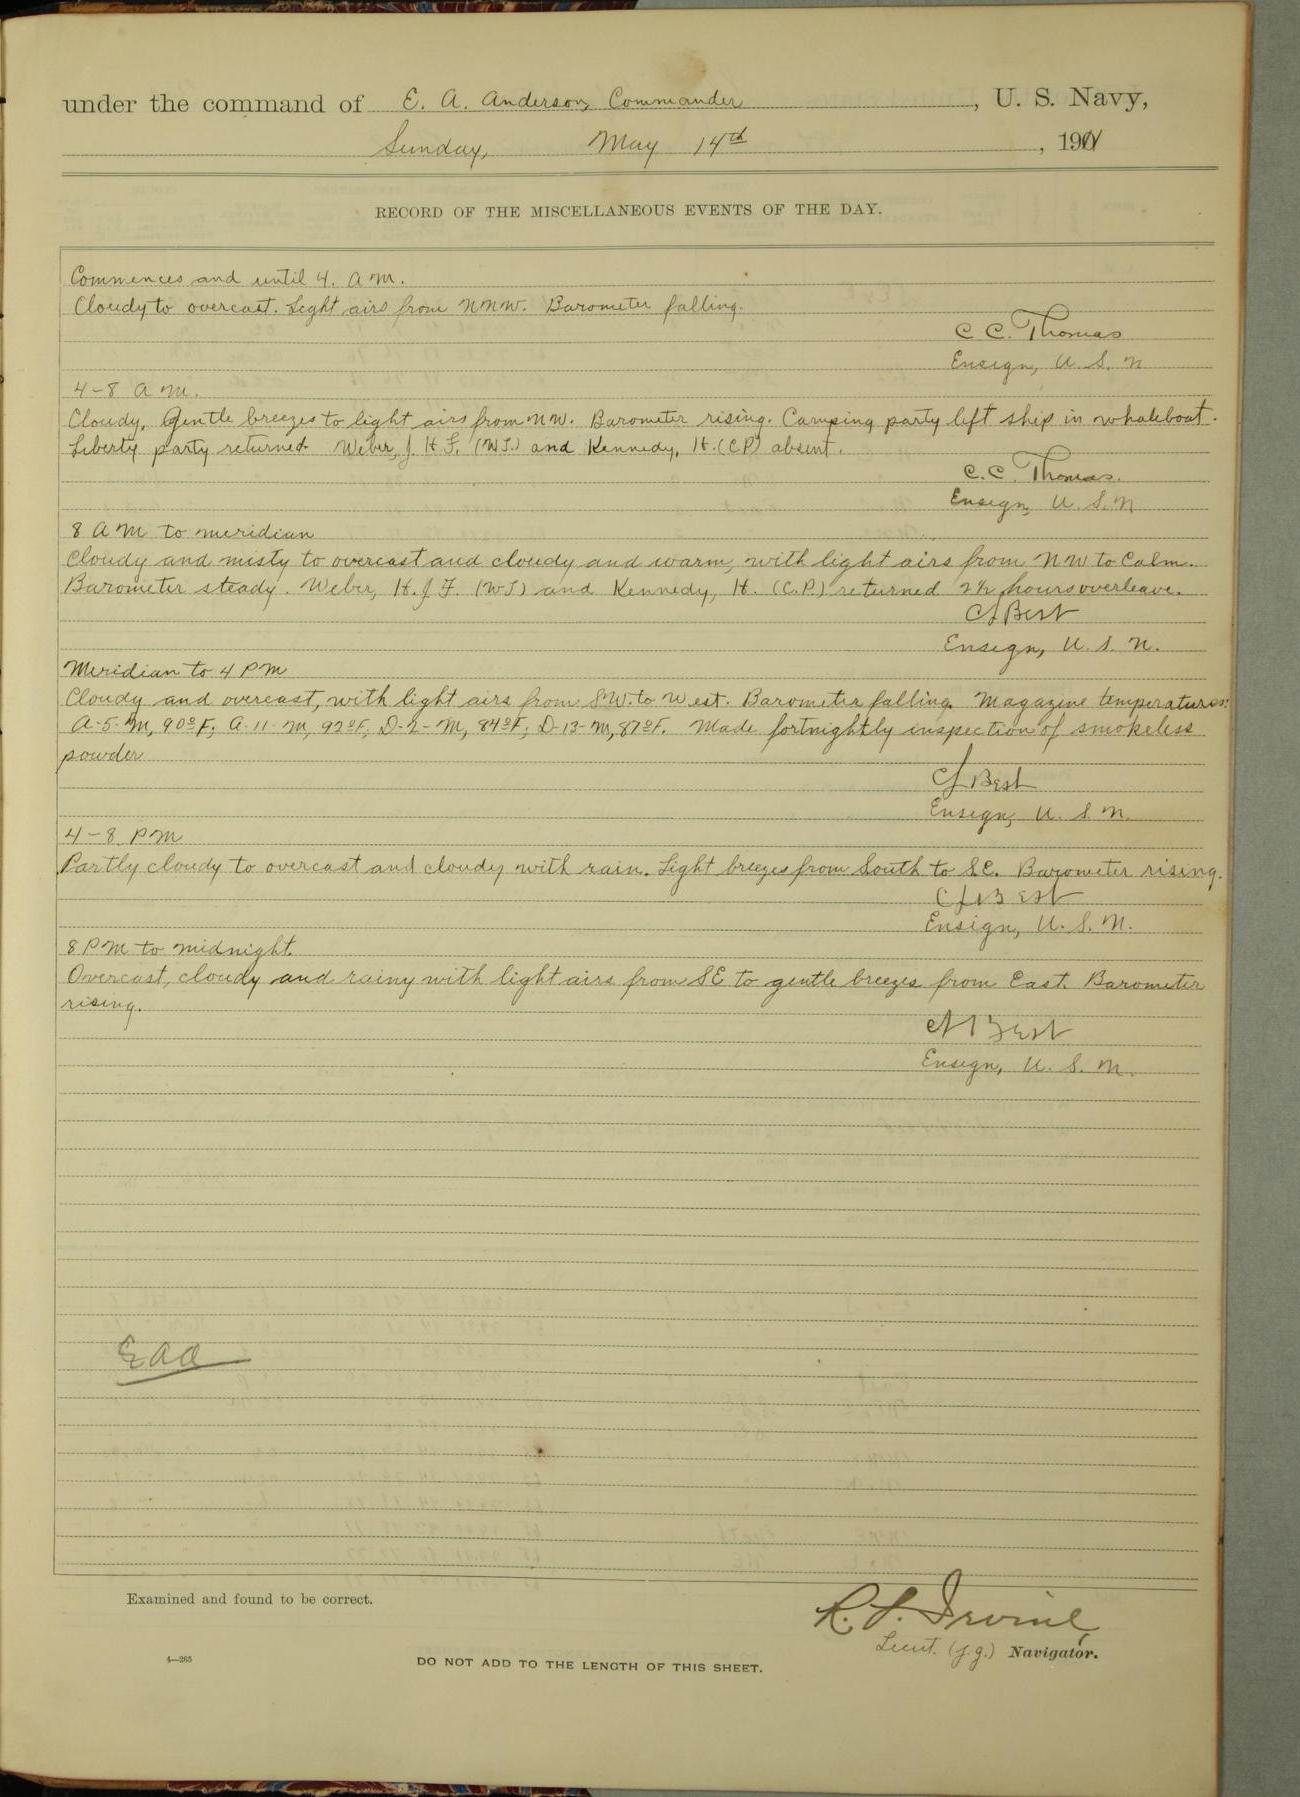 under the command of E. A. Anderson, Commander, U. S. Navy,
Sunday, May 14th, 1911
RECORD OF THE MISCELLANEOUS EVENTS OF THE DAY.
Commences and until 4. A M.
Cloudy to overcast. Light airs from NNW. Barometer falling.
C. C. Thomas
Ensign, U. S. N
4-8 A M.
Cloudy, Gentle breezes to light airs from NW. Barometer rising. Camping party left ship in whaleboat.
Liberty party returned. Weber, J. H F. (WT.) and Kennedy, H. (CP) absent.
C. C. Thomas.
Ensign, U. S. N
8 A M to meridian
Cloudy and misty to overcast and cloudy and warm, with light airs from NW to Calm.
Barometer steady. Weber, H. J. F. (WT) and Kennedy, H. (C.P.) returned 2½ hours overleave.
C J Best
Ensign, U. S. N.
Meridian to 4 PM
Cloudy and overcast, with light airs from SW. to West. Barometer falling. Magazine temperatures:
A-5-M, 90°F; A-11-M, 92°F; D-2-M, 84°F; D-13-M, 87°F. Made fortnightly inspection of smokeless
powder
C J Best
Ensign, U. S. N.
4-8 PM
Partly cloudy to overcast and cloudy with rain. Light breezes from South to SE. Barometer rising.
C J Best
Ensign, U. S. N.
8 PM to midnight.
Overcast, cloudy and rainy with light airs from SE to gentle breezes from East. Barometer
rising.
C J Best
Ensign, U. S. N.
EAA
Examined and found to be correct.
R. L. Irvine,
Lieut. (j.g.) Navigator.
4—265
DO NOT ADD TO THE LENGTH OF THIS SHEET.